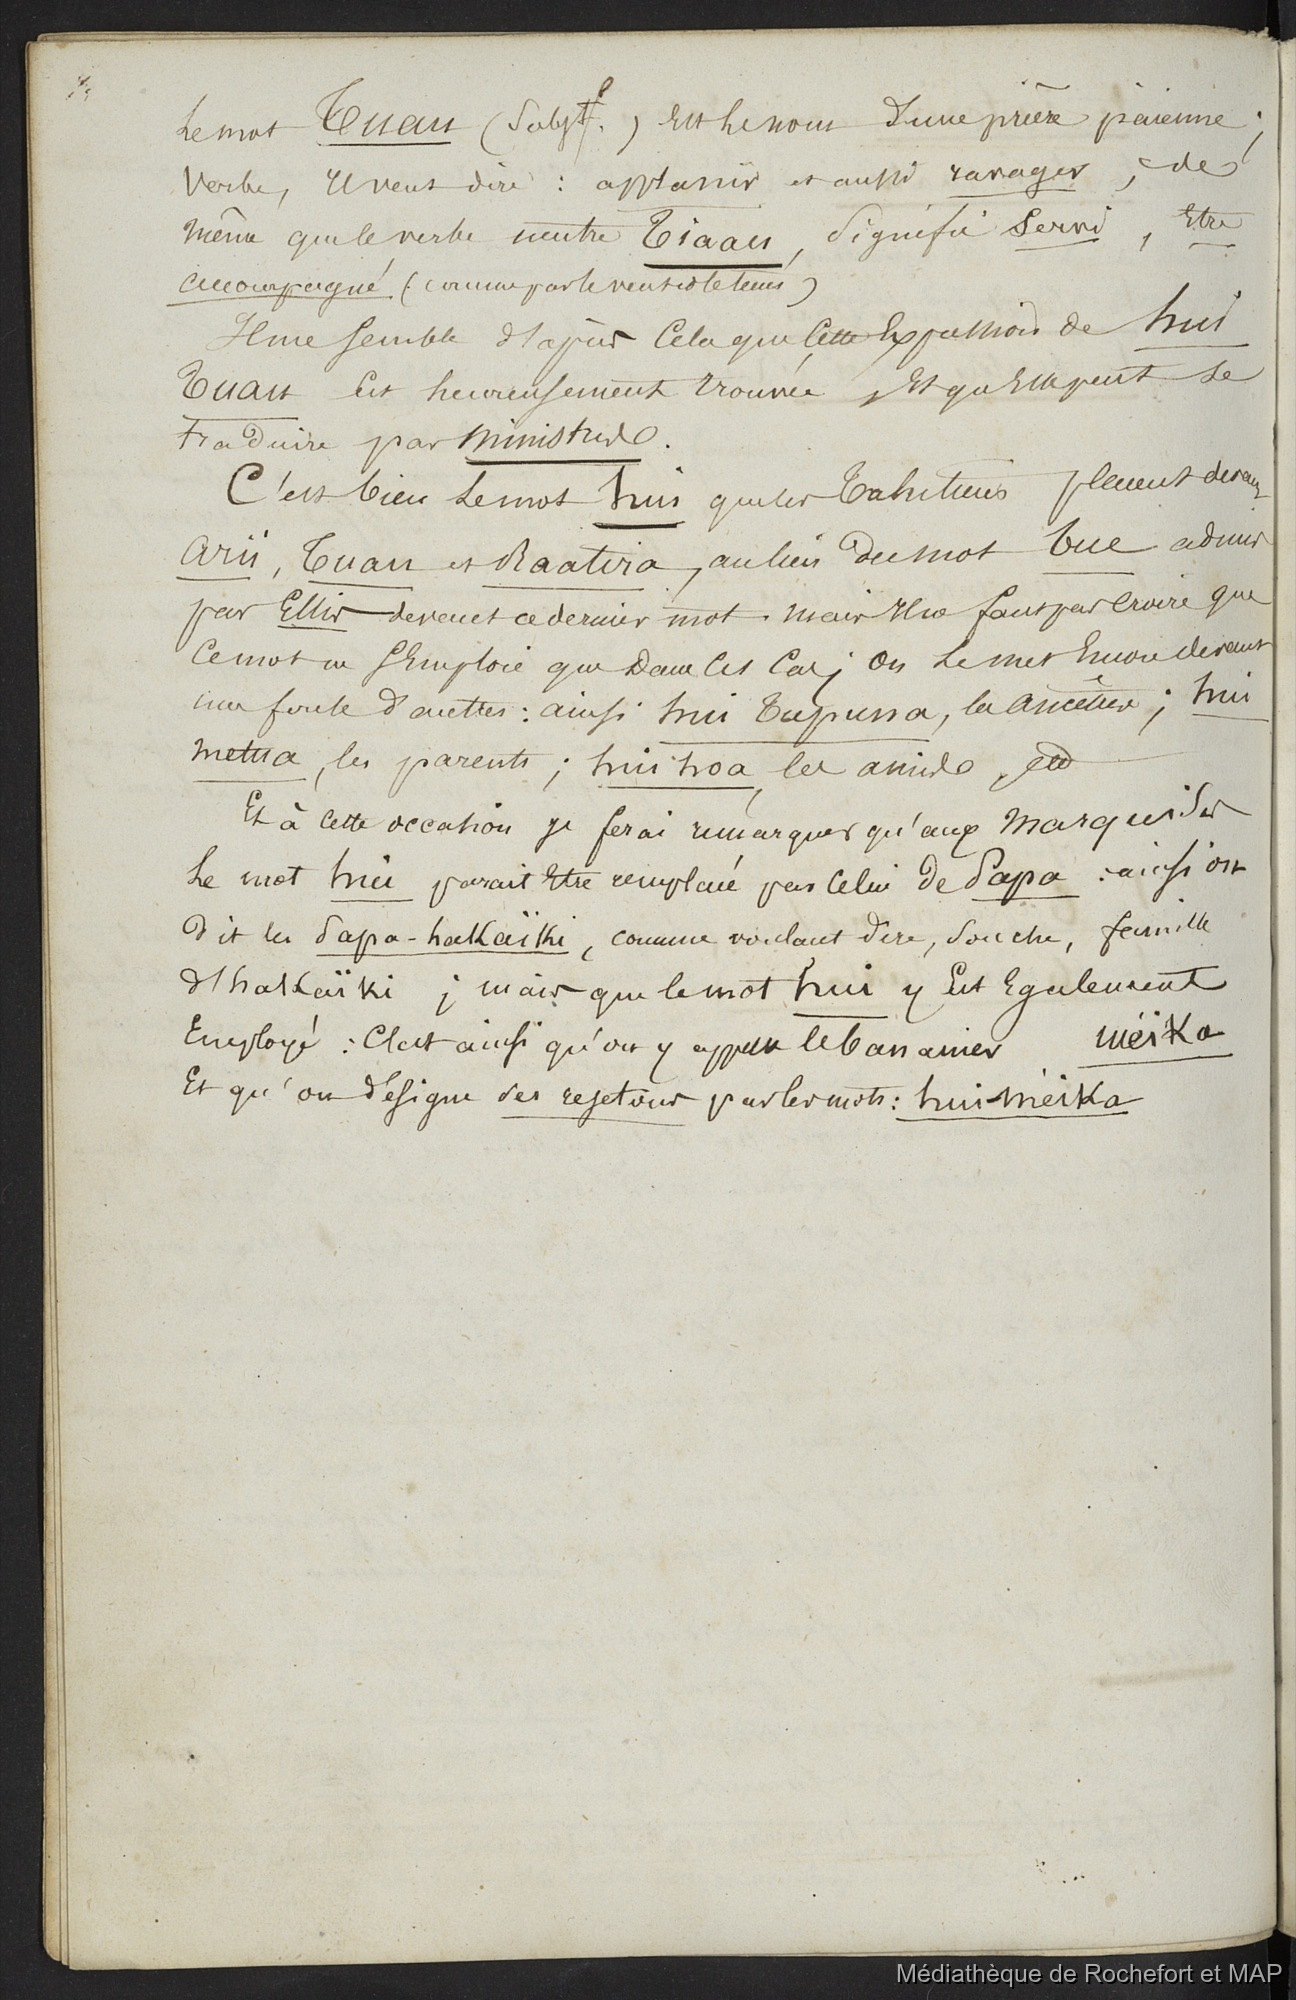 Le mot Tuau (Subst.) est le nom d'une prière païenne;
Verbe, il veut dire : applanir et aussi ravager, de
même que le verbe neutre Tiaau, signifie Servi, être
accompagné (comme par le vent et le tems)
Il me semble d'après cela que cette Expression de hui
Tuau est heureusement trouvée, Et qu'Elle peut se
traduire par ministres.
C'est bien le mot hui que les Tahitiens placent devant
Arii, Tuau et Raatira, au lieu du mot bue admis
par Ellis devant ce dernier mot. mais il ne faut pas croire que
ce mot ne s'Emploie que dans ces Cas; on le met Encore devant
une foule d'autres : ainsi hui Tupuna, les Ancêtres; hui
metua, les parents; hui hoa, les amis,
Et à cette occation je ferai remarquer qu'aux Marquises
le mot hui parait être remplacé par Celui de Papa : ainsi on
dit les papa-hakaïki, comme voulant dire, souche, famille
d'hakaïki; mais que le mot hui y Est Egalement
Employé : C'est ainsi qu'on y appelle le bananier méïka
Et qu'on désigne ses rejetons par les mots : hui-méïka
Médiathèque de Rochefort et MAP